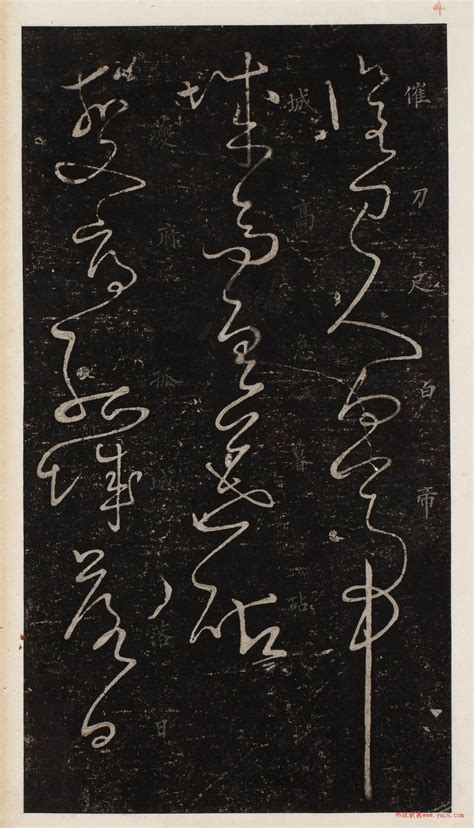 催刀尺白帝
城高急暮砧
夔府孤城落日
书法欣赏www.yac8.com